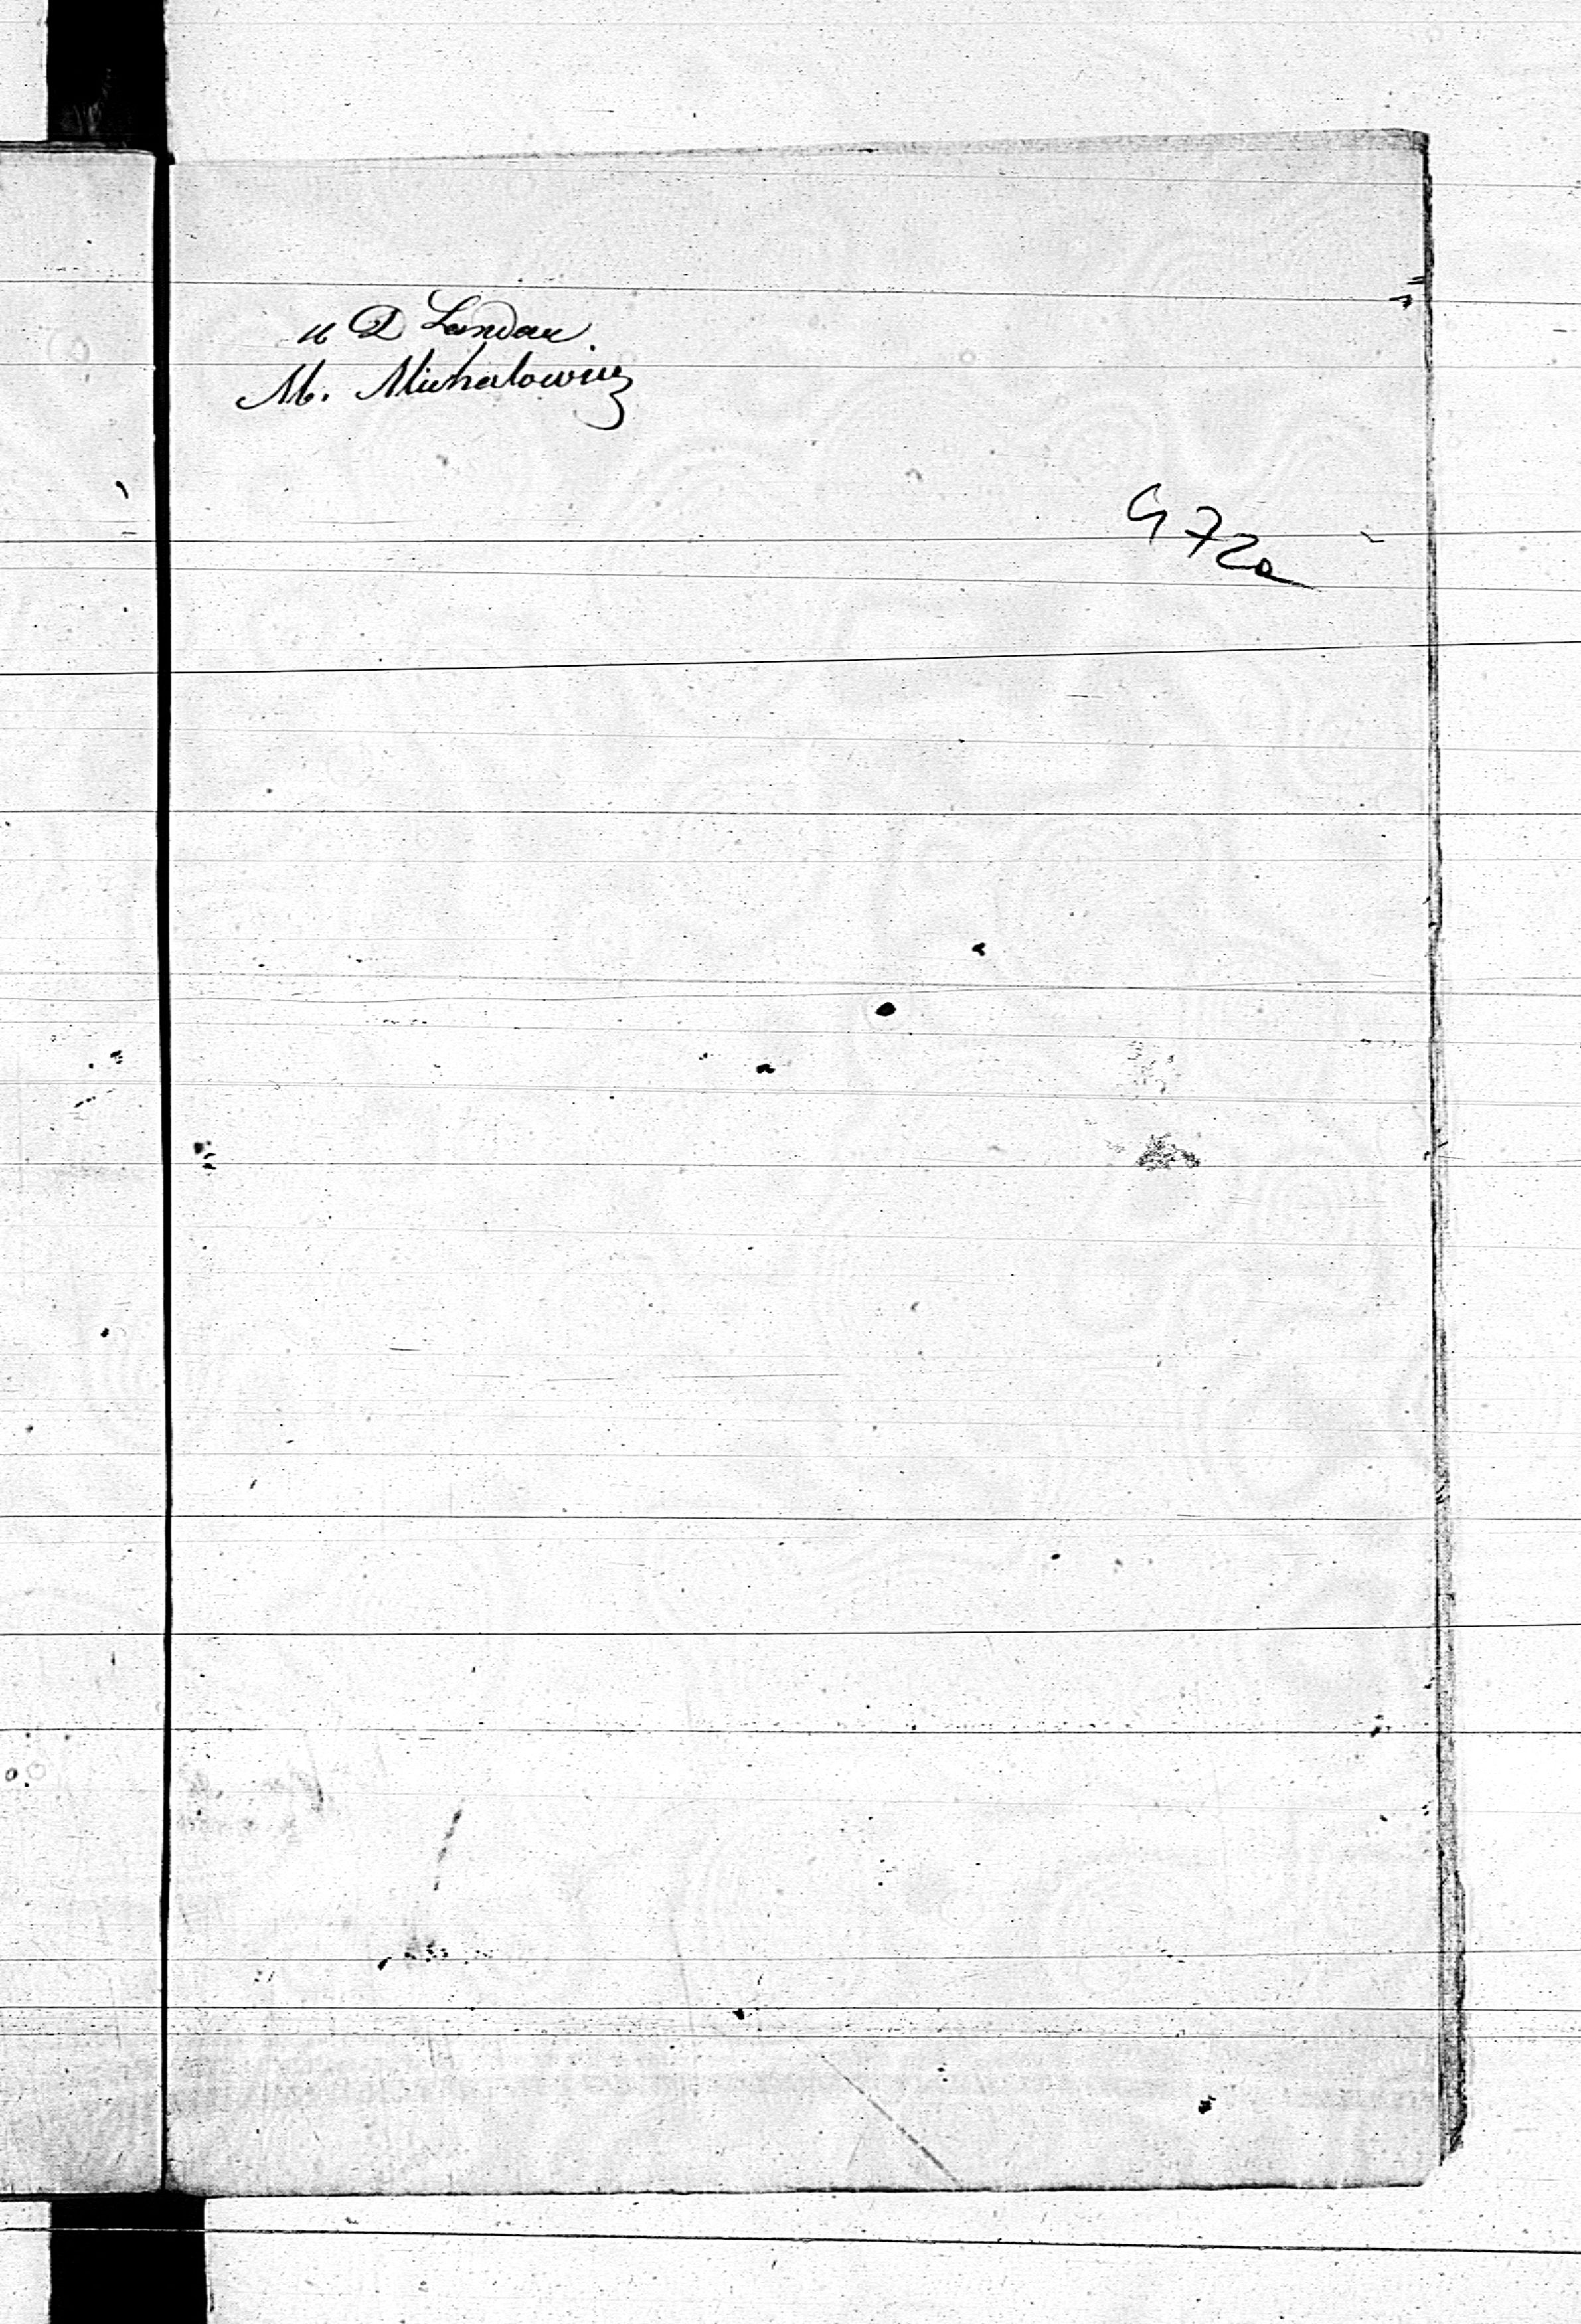 u D Landau.
M. Michałowicz
472a